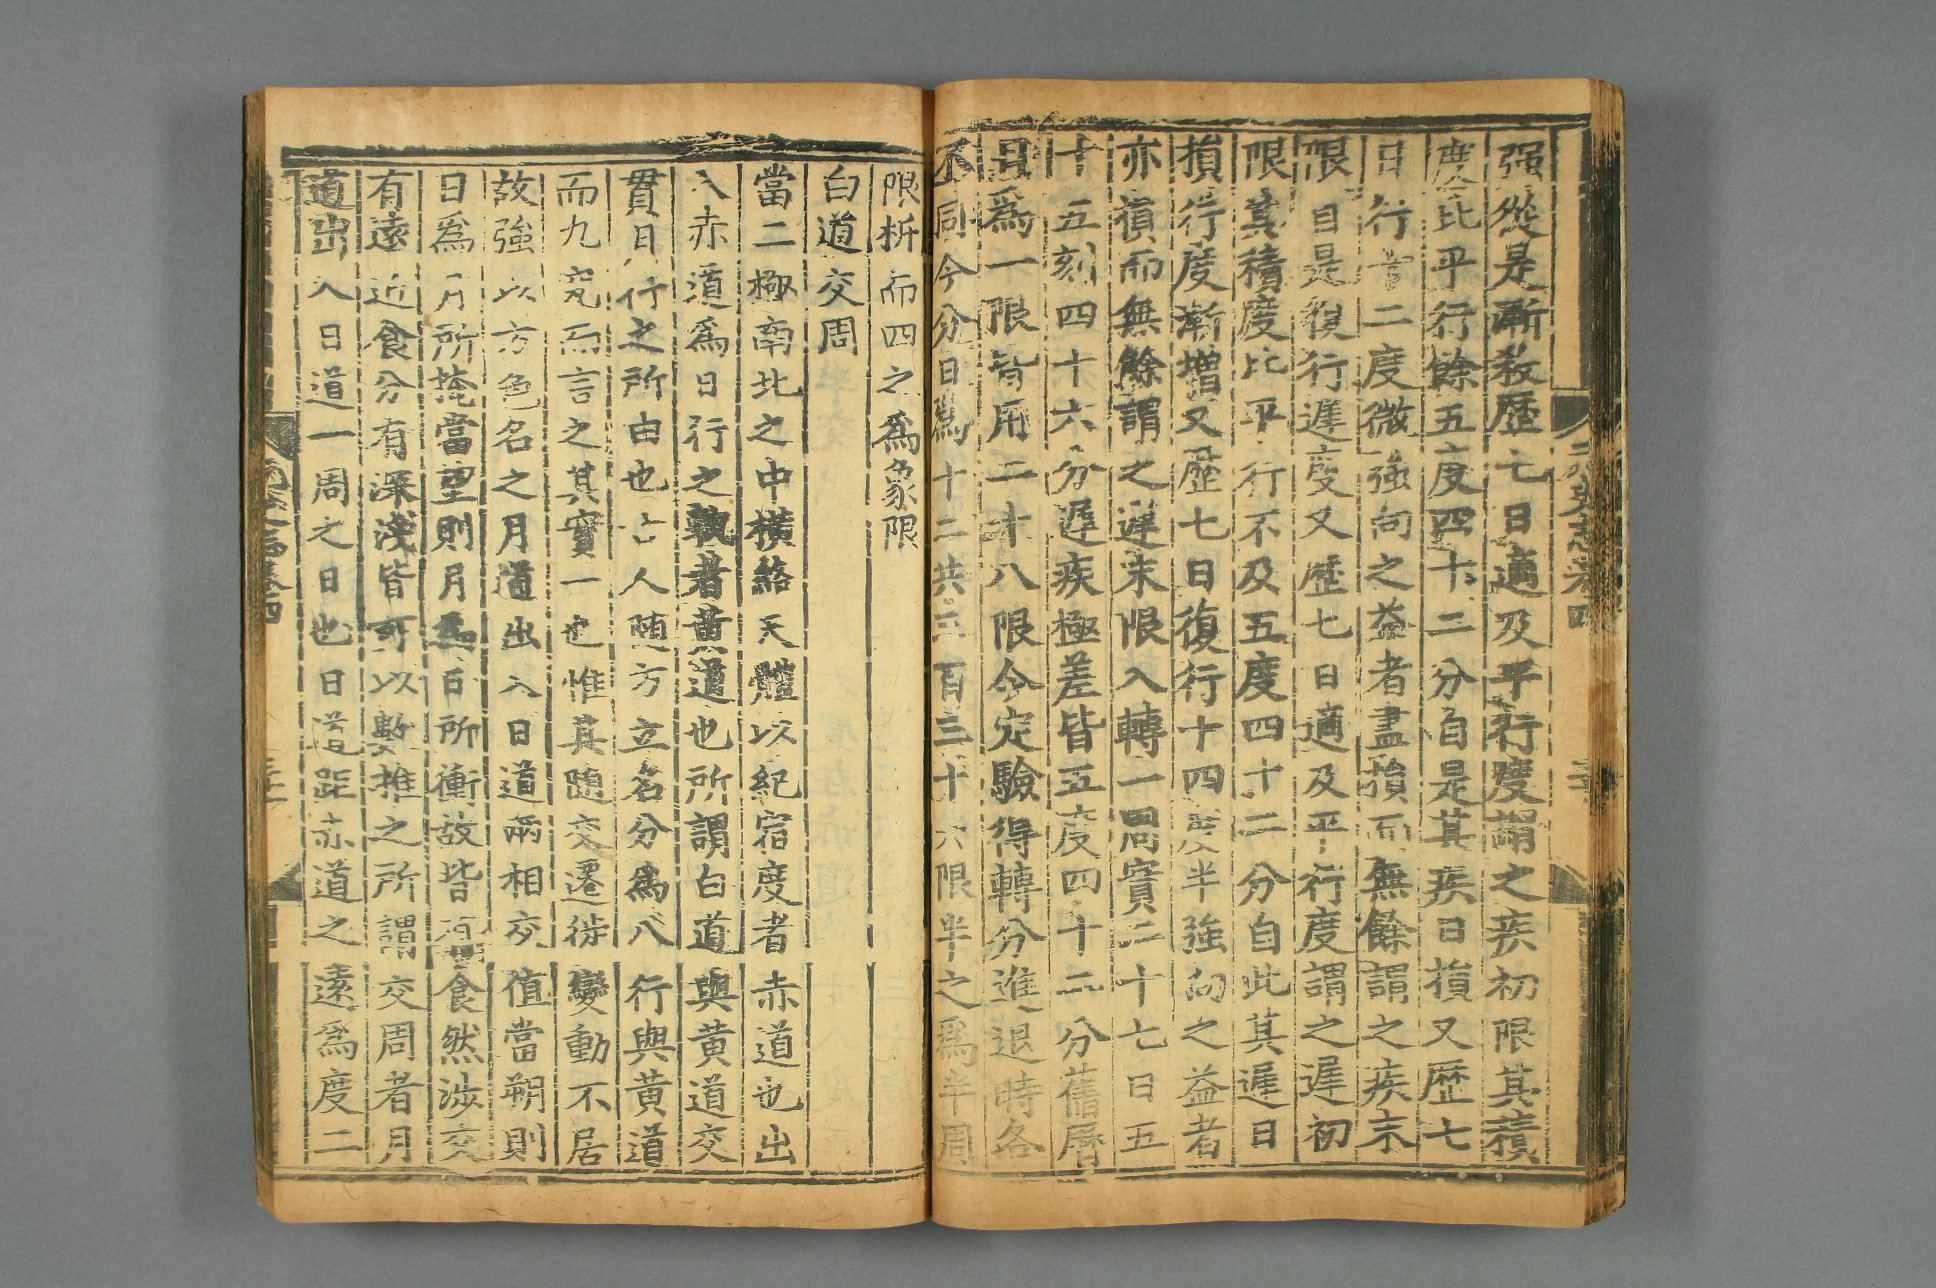 强從是漸殺歷七日適及平行度謂之疾初限其積
度比平行餘五度四十二分自是其疾日損又歷七
日行十二度微強向之益者盡損而無餘謂之疾末
限自是復行遲度又歷七日適及平行度謂之遲初
限其積度比平行不及五度四十二分自此其遲日
損行度漸增又歷七日復行十四度半強向之益者
亦損而無餘謂之遲末限入轉一周實二十七日五
十五刻四十六分遲疾極差皆五度四十二分舊曆
日爲一限皆用二十八限今定驗得轉分進退時各
不同今分日爲十二共三百三十六限半之爲半周
限析而四之爲象限
白道交周
當二極南北之中橫絡天體以紀宿度者赤道也出
入赤道爲日行之軌者黃道也所謂白道與黃道交
貫月行之所由也古人隨方立名分爲八行與黃道
而九究而言之其實一也惟其隨交遷徙變動不居
故強以方色名之月道出入日道兩相交值當朔則
日爲月所掩當望則月爲日所衝故皆有食然涉交
有遠近食分有深淺皆可以數推之所謂交周者月
道出入日道一周之日也日道距赤道之遠爲度二
元史志卷四